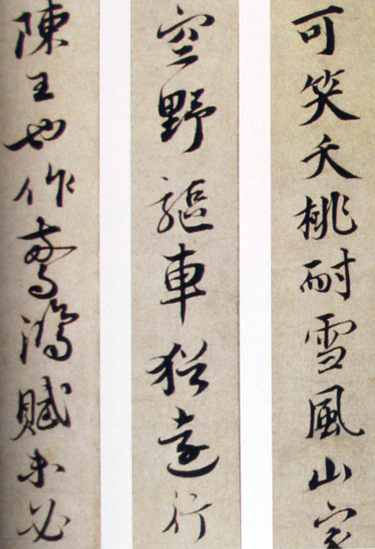 可笑夭桃耐雪風山家
空野驅車猶遠行
陳王也作驚鴻賦未必